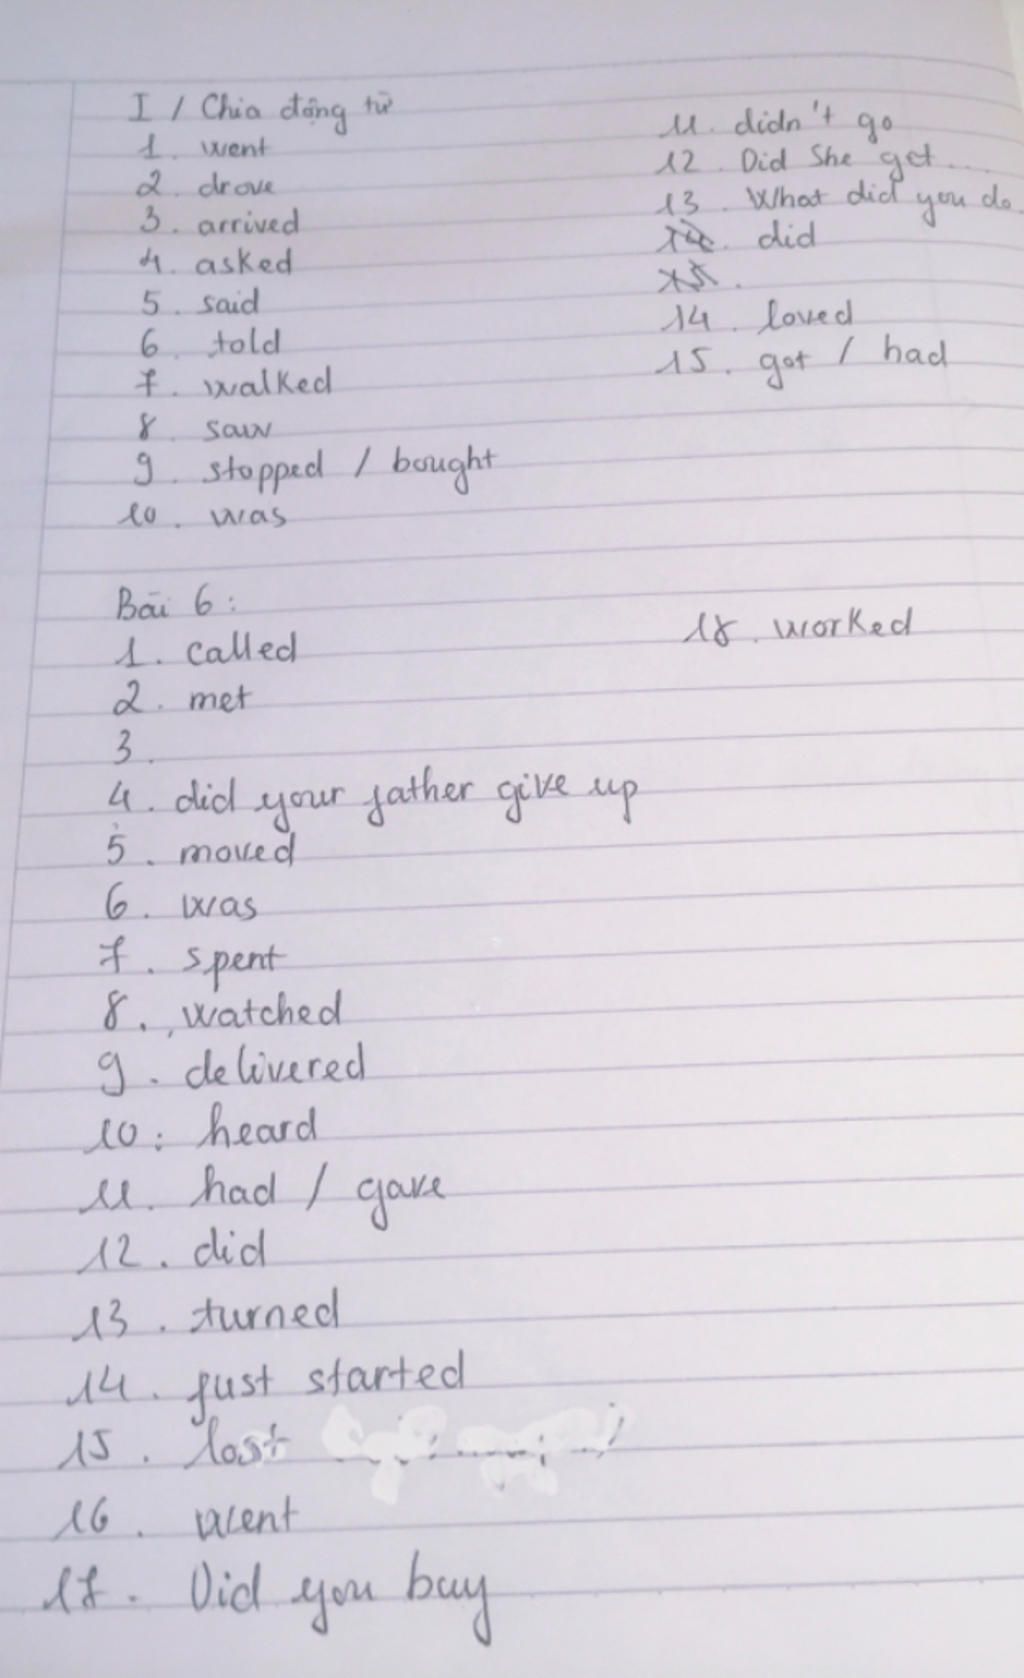 I / Chia động từ
1. went
2. drove
3. arrived
4. asked
5. said
6. told
7. walked
8. saw
9. stopped / bought
10. was
11. didn't go
12. Did She get...
13. What did you do.
14. did
15.
14. loved
15. got / had
Bài 6:
1. called
2. met
3.
4. did your father give up
5. moved
6. was
7. spent
8. watched
9. delivered
10. heard
11. had / gave
12. did
13. turned
14. just started
15. lost
16. went
17. Did you buy
18. worked